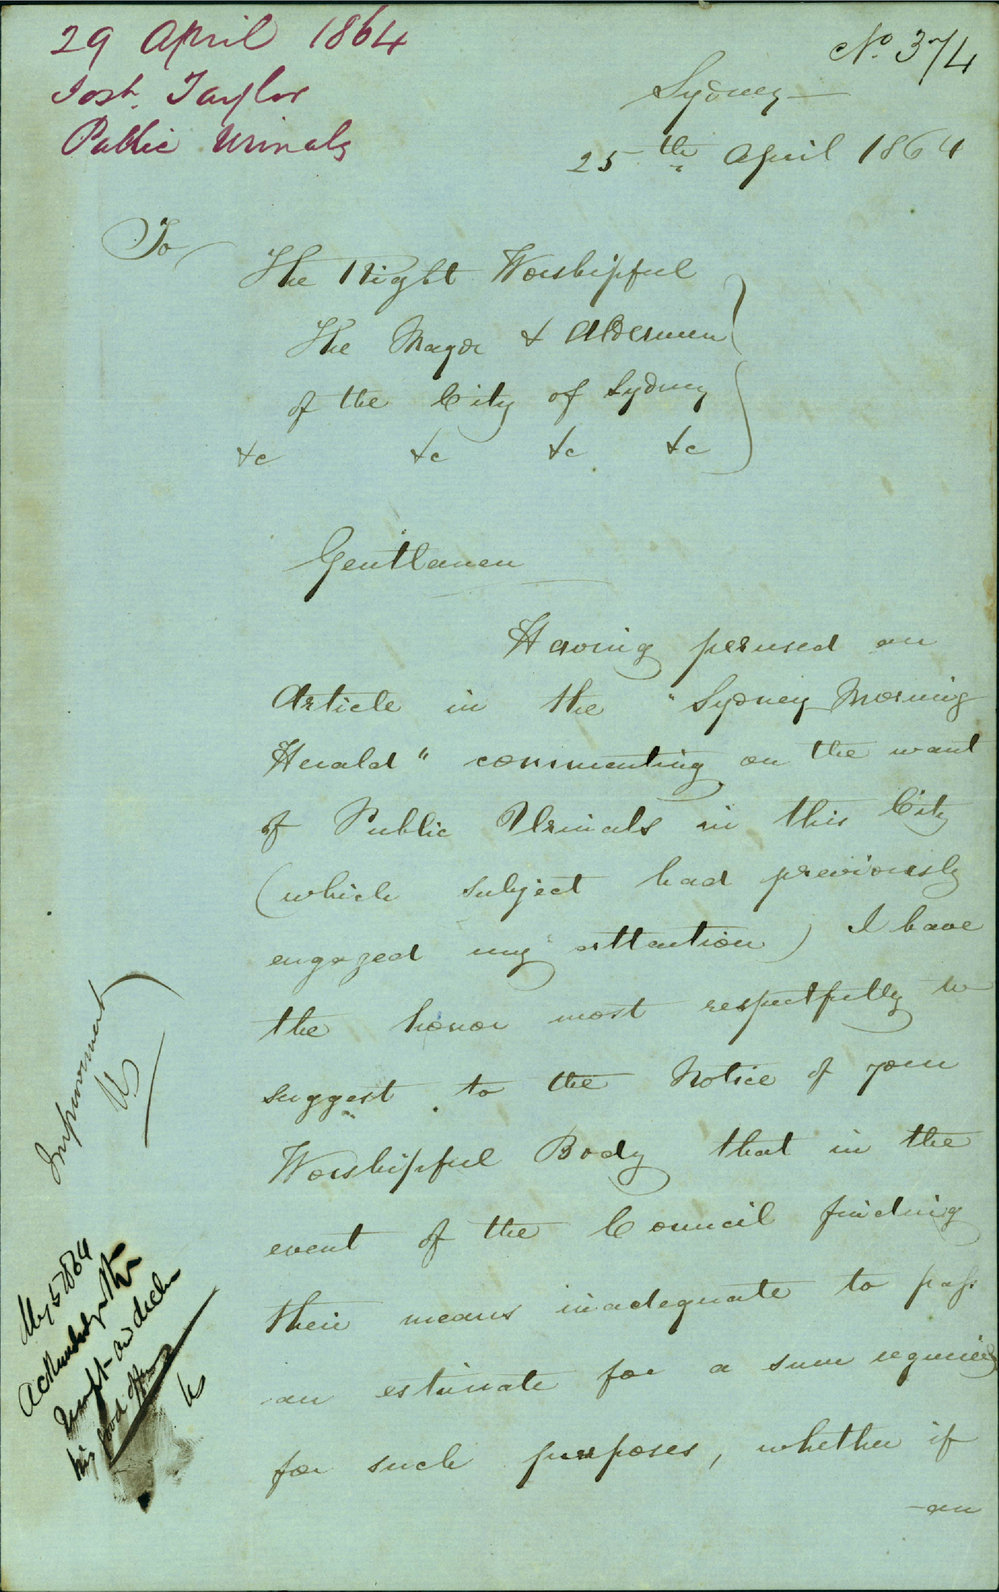 29 April 1864
Josh. Taylor
Public Urinals
No. 374
Sydney
25th April 1864
To
The Right Worshipful
The Mayor & Aldermen
of the City of Sydney
&c &c &c &c
Gentlemen
Having perused an
Article in the "Sydney Morning
Herald" commenting on the want
of Public Urinals in this City
(which subject had previously
engaged my attention) I have
the honor most respectfully to
suggest to the Notice of your
Worshipful Body that in the
event of the Council finding
their means inadequate to pass
an estimate for a sum required
for such purposes, whether if
an
Improvement
May 5 1864
Acknowledge the
receipt and decline
his good offer